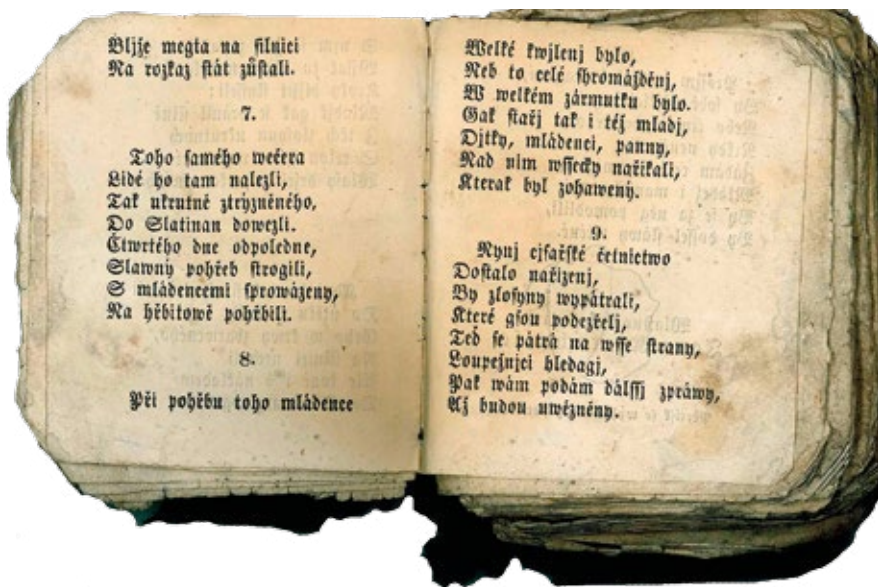 Bljže megta na ſilnici
Na rozkaz ſtát zůſtali.
7.
Toho ſamého wečera
Lidé ho tam nalezli,
Tak ukrutně ztrýzněného,
Do Slatinan dowezli.
Čtwrtého dne odpoledne,
Slawný pohřeb ſtrogili,
S mládencemi ſprowázeny,
Na hřbitowě pohřbili.
8.
Při pohřbu toho mládence
Welké kwjlenj bylo,
Neb to celé ſhromážděnj,
W welkém zármutku bylo.
Gak ſtařj tak i též mladj,
Djtky, mládenci, panny,
Nad nim wſſecky nařikali,
Kterak byl zohawený.
9.
Nynj cjſařſké četnictwo
Doſtalo nařizenj,
By zloſyny wypátrali,
Které gſou podezřelj,
Teď ſe pátrá na wſſe ſtrany,
Loupežnjci hledagj,
Pak wám podám dálſſj zpráwy,
Až budou uwězněny.